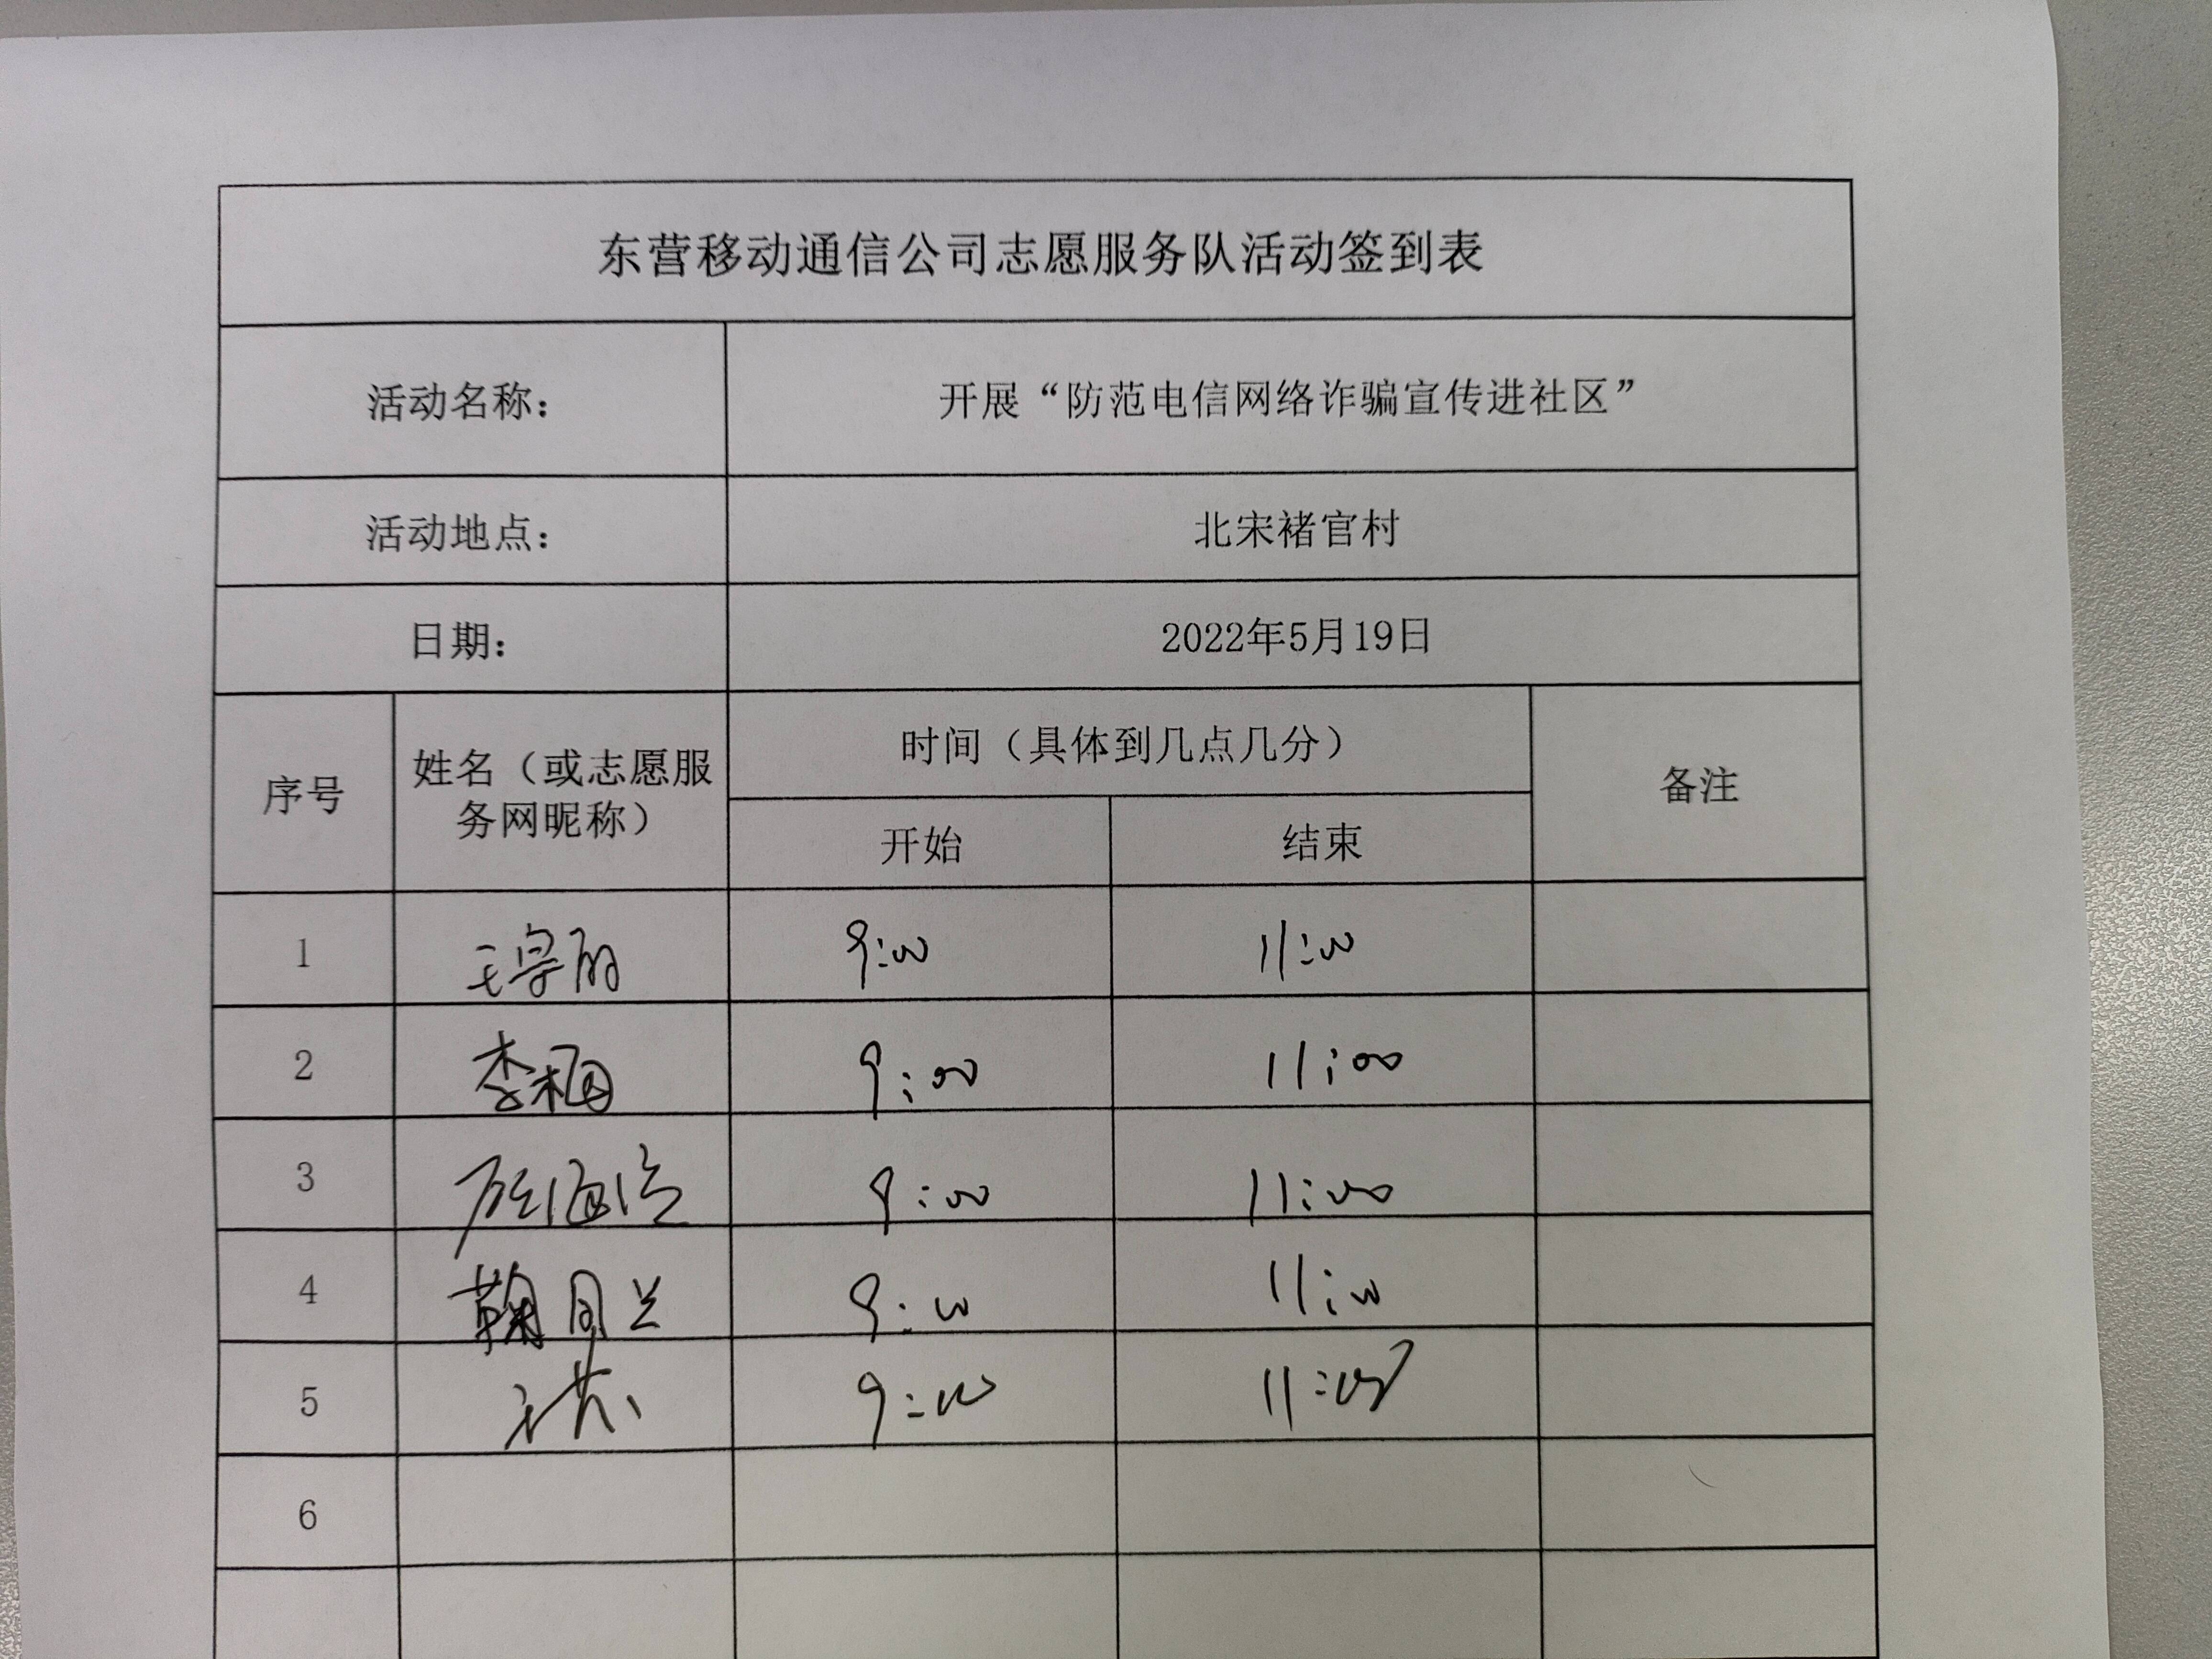 东营移动通信公司志愿服务队活动签到表
活动名称： 开展“防范电信网络诈骗宣传进社区”
活动地点： 北宋褚官村
日期： 2022年5月19日
序号 姓名（或志愿服务网昵称） 时间（具体到几点几分） 备注
开始 结束
1 9:00 11:00
2 李梅 9:00 11:00
3 9:00 11:00
4 9:00 11:00
5 9:00 11:00
6